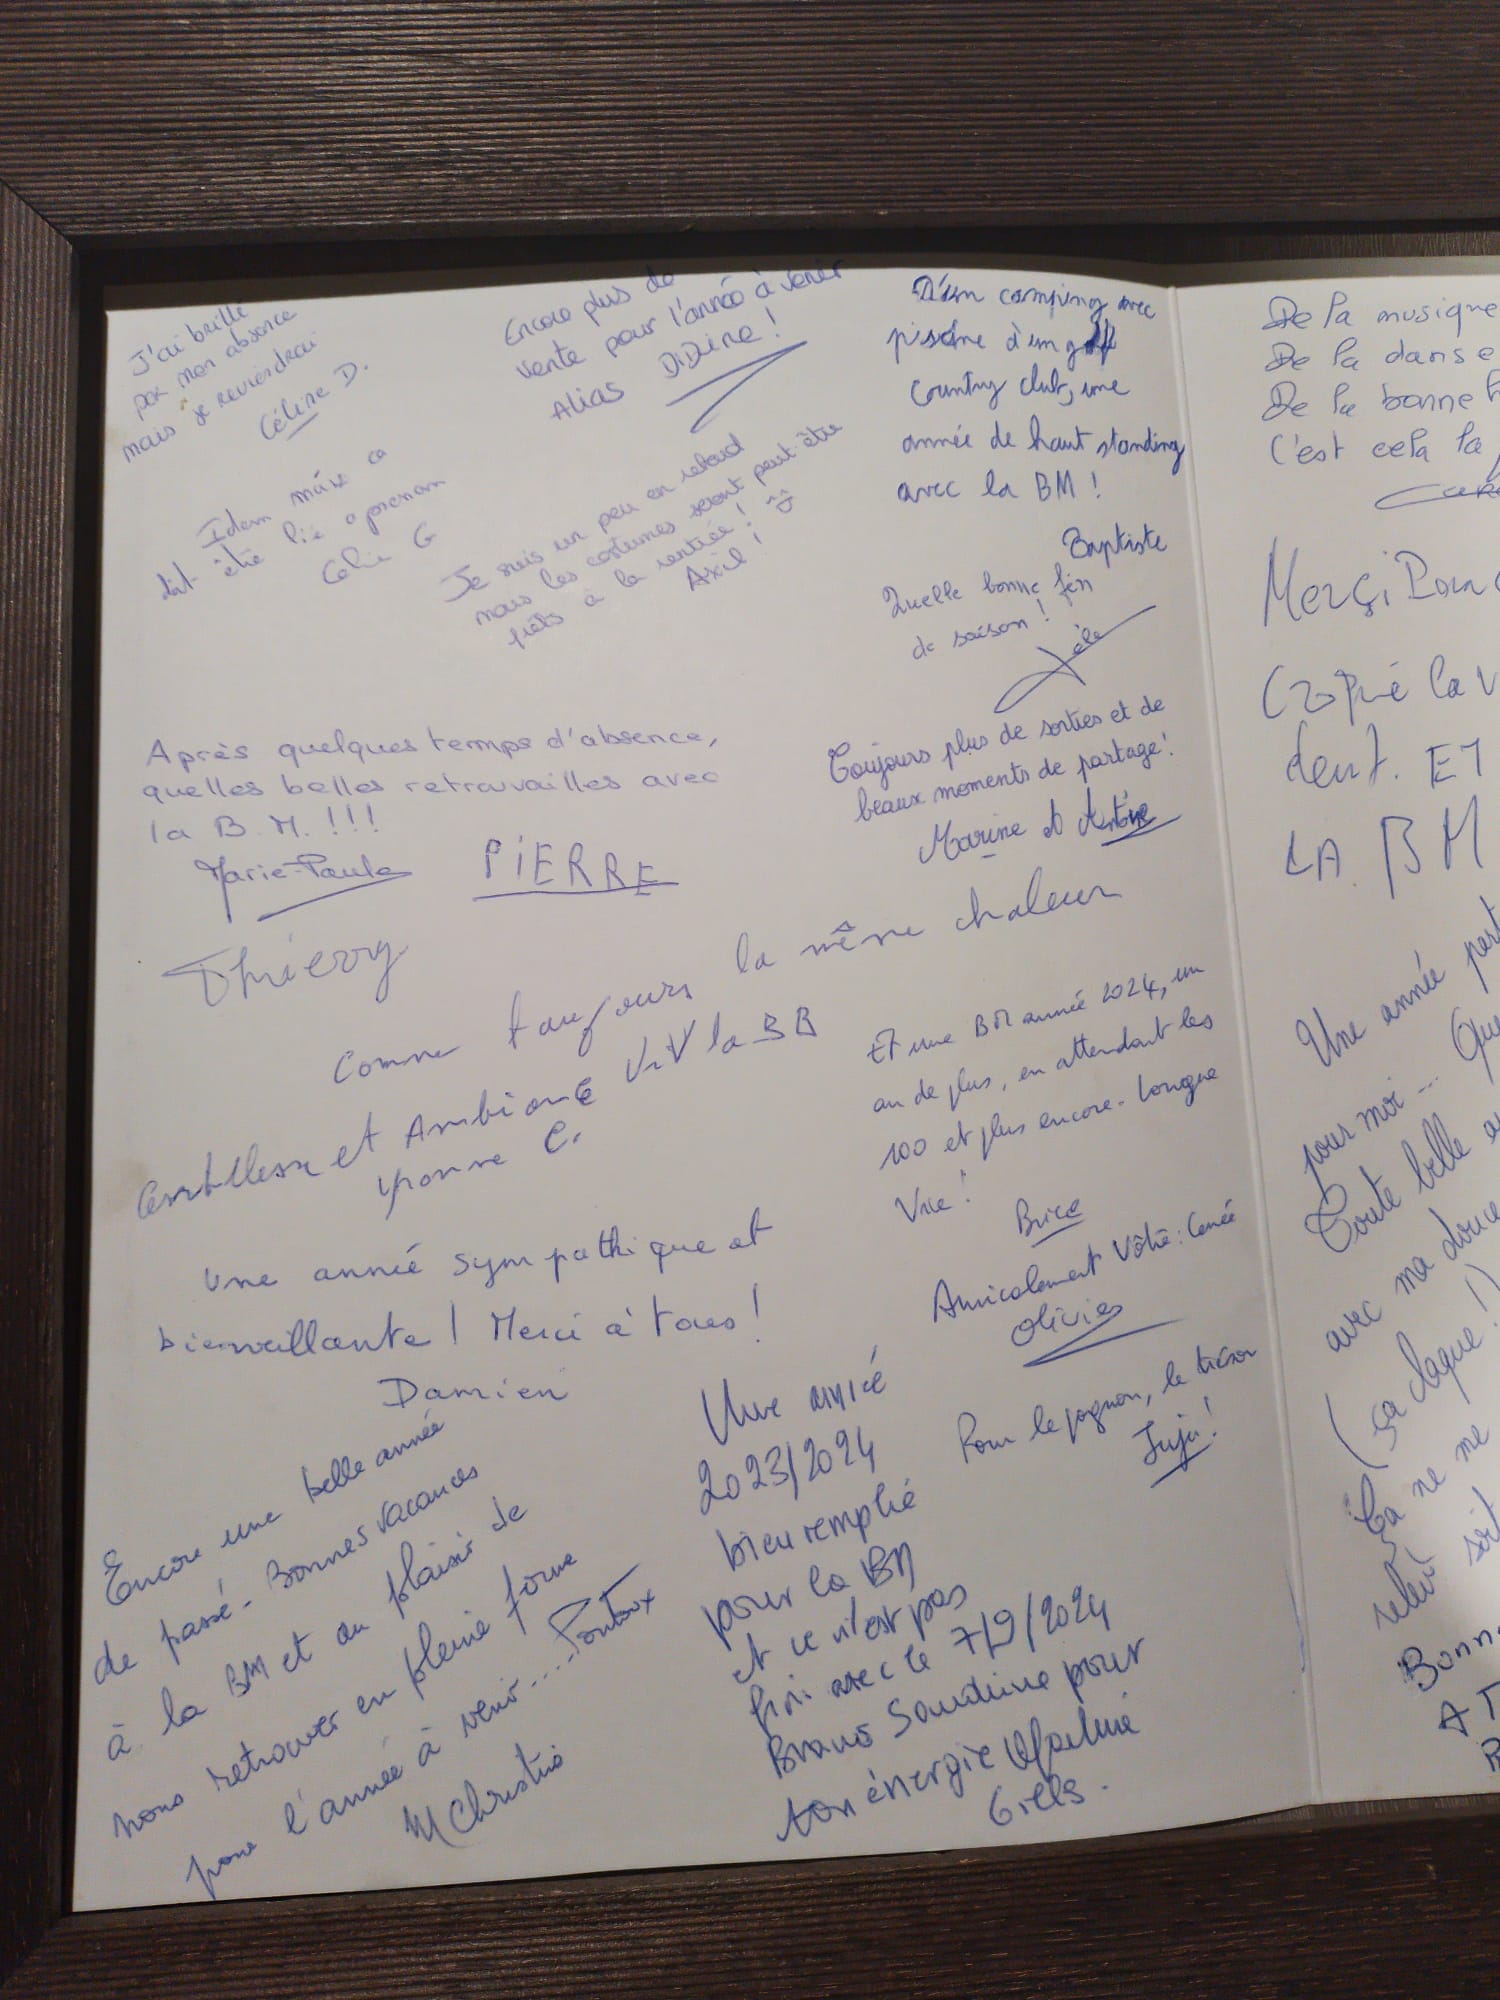 J'ai brillé
par mon absence
mais je reviendrai
Céline D.
Idem mais ca
doit être lié o prénom
Célie G
Encore plus de
vente pour l'année à venir
Alias DiDine !
Je suis un peu en retard
mais les costumes seront peut être
prêts à la rentrée ! :)
Axil !
D'un camping avec
piscine à un golf
Country club, une
année de haut standing
avec la BM !
Baptiste
Quelle bonne fin
de saison !
Après quelques temps d'absence,
quelles belles retrouvailles avec
la B.M. !!!
Marie-Paule
PiERRE
Thierry
Toujours plus de sorties et de
beaux moments de partage !
Marine et Antoine
Comme toujours la même chaleur
Gentillesse et Ambiance
Yvonne C.
Et une BM année 2024, un
an de plus, en attendant les
100 et plus encore. Longue
Vie !
Brice
Une année sympathique et
bienveillante ! Merci à tous !
Damien
Amicalement Vôtre :
Olivier
Pour le pognon, le trésor
Juju !
Encore une belle année
de passé - Bonnes vacances
à la BM et au plaisir de
nous retrouver en pleine forme
pour l'année à venir....
M Christine
Une année
2023/2024
bien remplie
pour la BM
et ce n'est pas
fini avec le 7/9/2024
Bravo Sandrine pour
ton énergie
Gilles.
De la musique
De la danse
De la bonne
C'est cela la
Merçi Pour
la
dent. ET
LA BM
Une année
pour moi... Que
Toute belle
avec ma douce
(ça claque !)
Ça ne me
soit